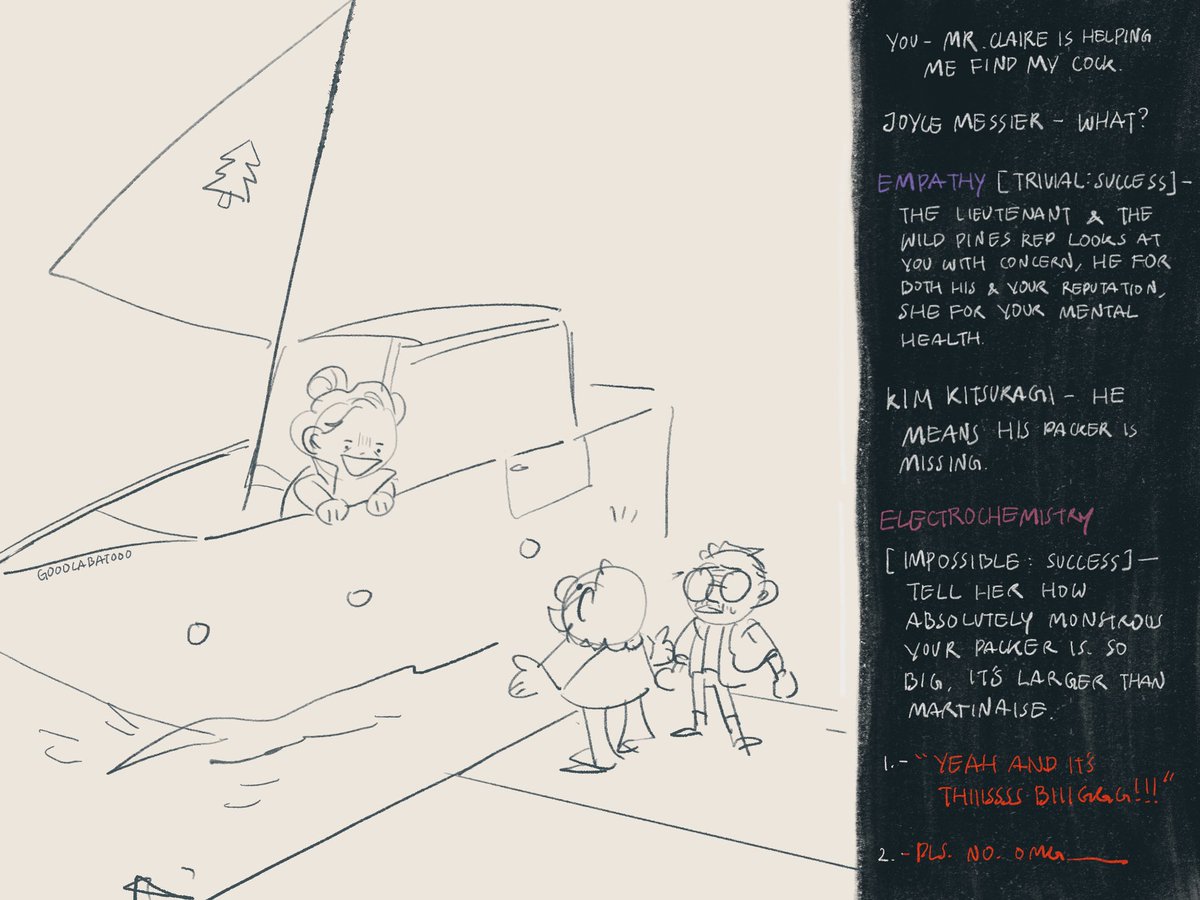 YOU - MR. CLAIRE IS HELPING
ME FIND MY COCK.
JOYCE MESSIER - WHAT?
EMPATHY [TRIVIAL: SUCCESS] -
THE LIEUTENANT & THE
WILD PINES REP LOOKS AT
YOU WITH CONCERN, HE FOR
BOTH HIS & YOUR REPUTATION,
SHE FOR YOUR MENTAL
HEALTH.
KIM KITSURAGI - HE
MEANS HIS PACKER IS
MISSING.
ELECTROCHEMISTRY
[IMPOSSIBLE: SUCCESS] -
TELL HER HOW
ABSOLUTELY MONSTROUS
YOUR PACKER IS. SO
BIG, IT'S LARGER THAN
MARTINAISE.
1. - "YEAH AND IT'S
THIIISSSS BIIIGGGG!!!"
2. - PLS. NO. OMG
GOOOLABATOOO